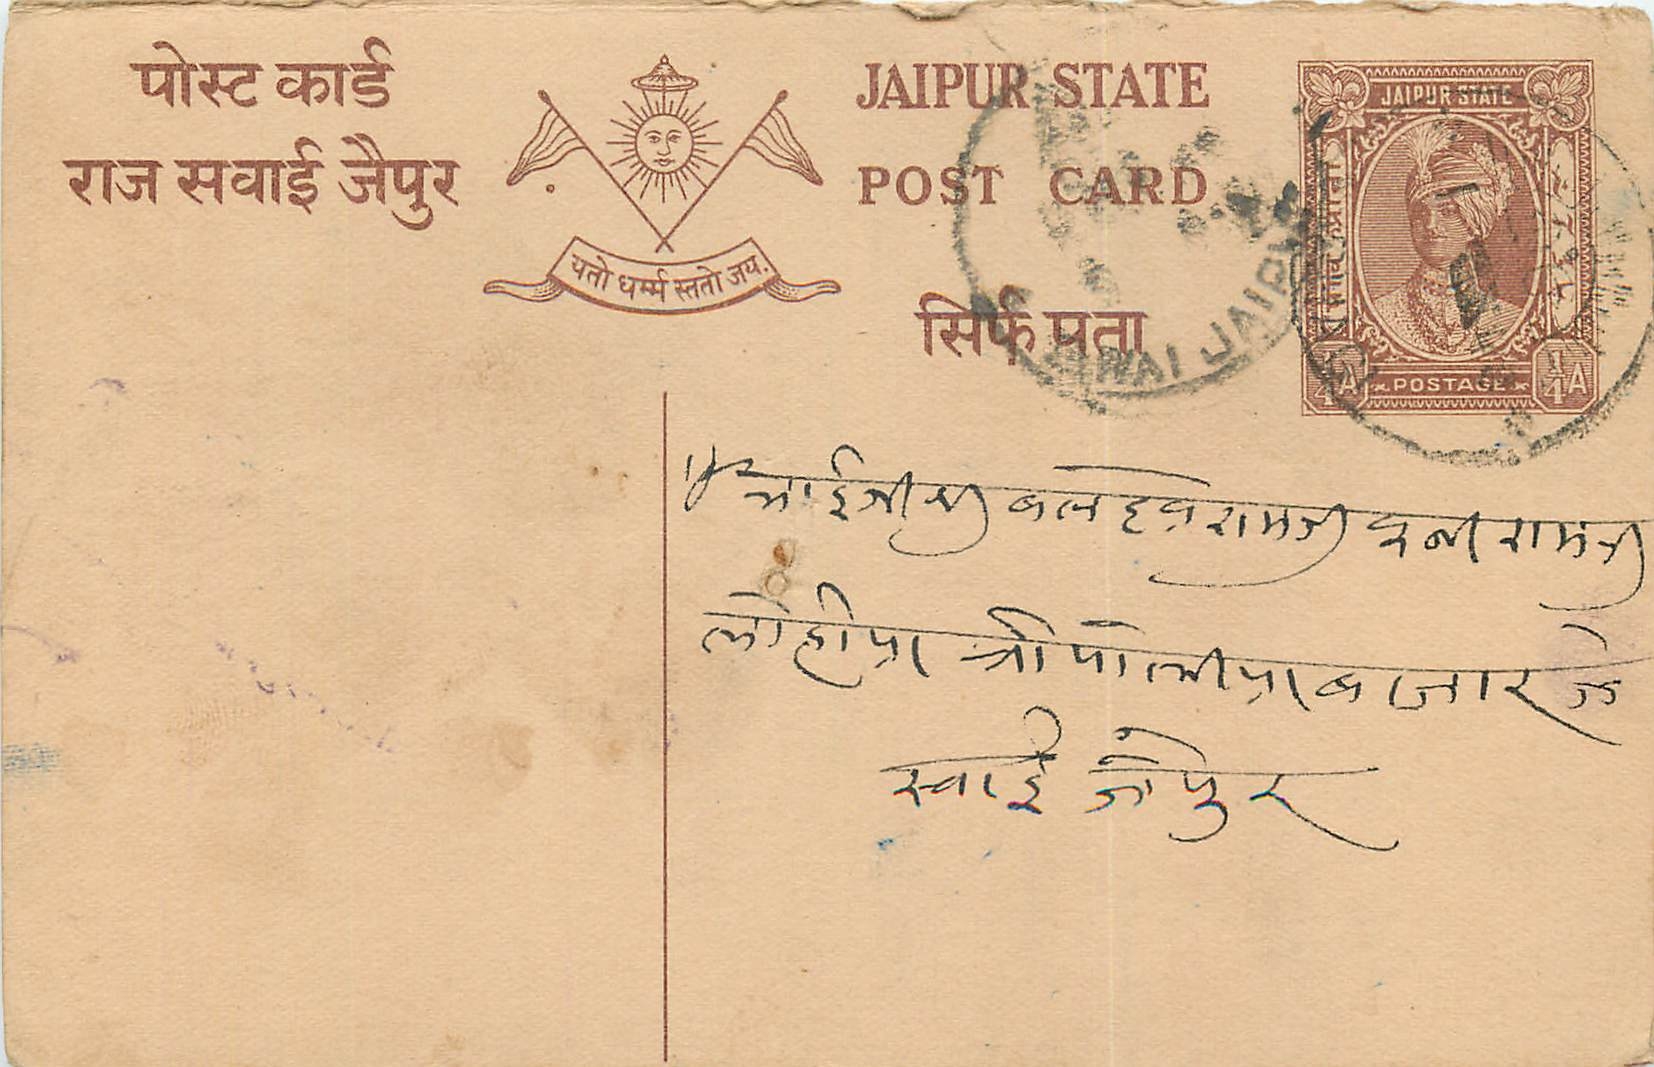 पोस्ट कार्ड
राज सवाई जैपुर
यतो धर्म्म स्ततो जय.
JAIPUR STATE
POST CARD
सिर्फ पता
JAIPUR STATE
¼A POSTAGE ¼A
WAI JAIPU
भाईजी श्री बलदेवरामजी रामजी
लोहीया त्रीपोलीया बाजार
स्वाई जैपुर